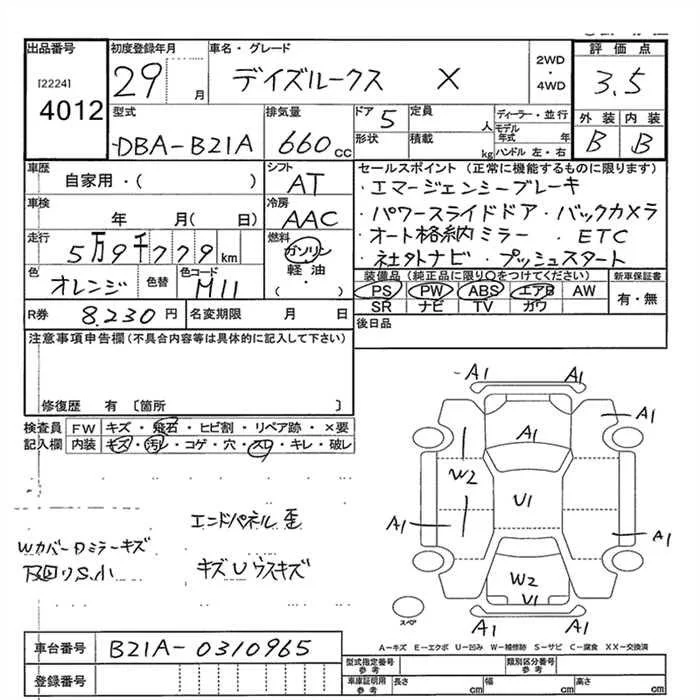 出品番号 初度登録年月 車名・グレード 2WD・4WD 評価点
[2224] 4012
29 月 デイズルークス X 3.5
型式 排気量 ドア 定員 ディーラー・並行 外装 内装
DBA-B21A 660cc 5 人 モデル年式 年 B B
形状 積載 kg ハンドル 左・右
車歴 シフト セールスポイント (正常に機能するものに限ります)
自家用・( ) AT ・エマージェンシーブレーキ
車検 冷房 ・パワースライドドア・バックカメラ
年 月( 日) AAC ・オート格納ミラー・ETC
走行 燃料 ・社外ナビ・プッシュスタート
5万9千779km ガソリン・軽油・( )
色 色替 色コード 装備品 (純正品に限り○をつけてください) 新車保証書
オレンジ M11 PS PW ABS エアB AW 有・無
SR ナビ TV ガワ
R券 8,230円 名変期限 月 日 後日品
注意事項申告欄(不具合内容等は具体的に記入して下さい)
修復歴 有 〔箇所 〕
検査員記入欄 FW キズ・飛石・ヒビ割・リペア跡・×要
内装 キズ・汚レ・コゲ・穴・スレ・キレ・破レ
エンドパネル歪
Wカバー Dミラーキズ
下回りS.小
キズU ウスキズ
A1 A1
A1 A1
W2 U1
A1 A1
W2
U1
A1 A1
スペア
A-キズ E-エクボ U-凹み W-補修跡 S-サビ C-腐食 XX-交換済
車台番号 B21A-0310965
型式指定番号 参考 類別区分番号 参考
登録番号 車庫証明用 参考 長さ cm 幅 cm 高さ cm